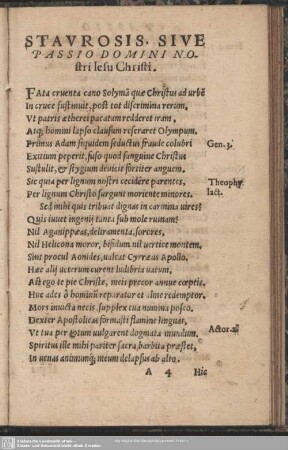 STAVROSIS. SIVE
PASSIO DOMINI NO-
stri Iesu Christi.
FAta cruenta cano Solymã quæ Christus ad urbē
In cruce sustinuit, post tot discrimina rerum,
Vt patris ætherei pacatam redderet iram,
Atq; homini lapso clausum reseraret Olympum.
Primus Adam siquidem seductus fraude colubri
Gen. 3.
Exitium peperit, fuso quod sanguine Christus
Sustulit, & stygium deuicit fortiter anguem.
Sic quia per lignum nostri cecidêre parentes,
Theophy
Per lignum Christi surgunt moriente minores.
lact.
Sed mihi quis tribuat dignas in carmina uires?
Quis iuuet ingenij tanta sub mole ruinam?
Nil Aganippæas, deliramenta, sorores,
Nil Helicona moror, bifidum nil uertice montem,
Sint procul Aonides, ualeat Cyrræus Apollo,
Hæc alij uecterum curent ludibria uatum,
Ast ego te pie Christe, meis precor annue cœptis,
Huc ades ô hominũ reparator et alme redemptor.
Mors inuicta necis, supplex tua numina posco.
Dexter Apostolicas formasti flamine linguas,
Vt tua per totum uulgarent dogmata mundum,
Actor. 2.
Spiritus ille mihi pariter sacra barbita præstet,
In uenas animumq; meum delapsus ab alto.
A 4 Hic